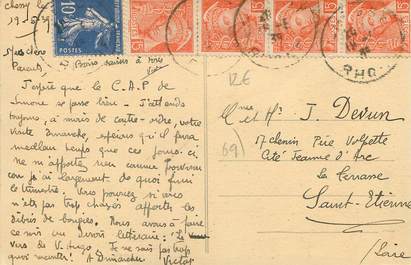 Mes chers
Parents,
Bons baisers à tous
Victor
J'espère que le C.A.P de
Simone se passe bien. J'attends
toujours, à moins de contre-ordre, votre
visite Dimanche, espérons qu'il fera
meilleur temps que ces jours-ci
ne m'apportez rien comme provisions
car j'ai largement de quoi finir
le trimestre. Vous pouvez si vous
n'êts pas trop chargés apporter les
débris de bougies. Nous avons à faire
ce mois un devoir littéraire: Le
vers de V. Hugo. Je ne sais pas trop
quoi raconter! A Dimanche Victor
10c
POSTES
15
15
15
15
RHO
12€
69
Mme et Mr J. Devun
17 chemin Père Volpette
Cité Jeanne d'Arc
La Terrasse
Saint-Etienne
Loire